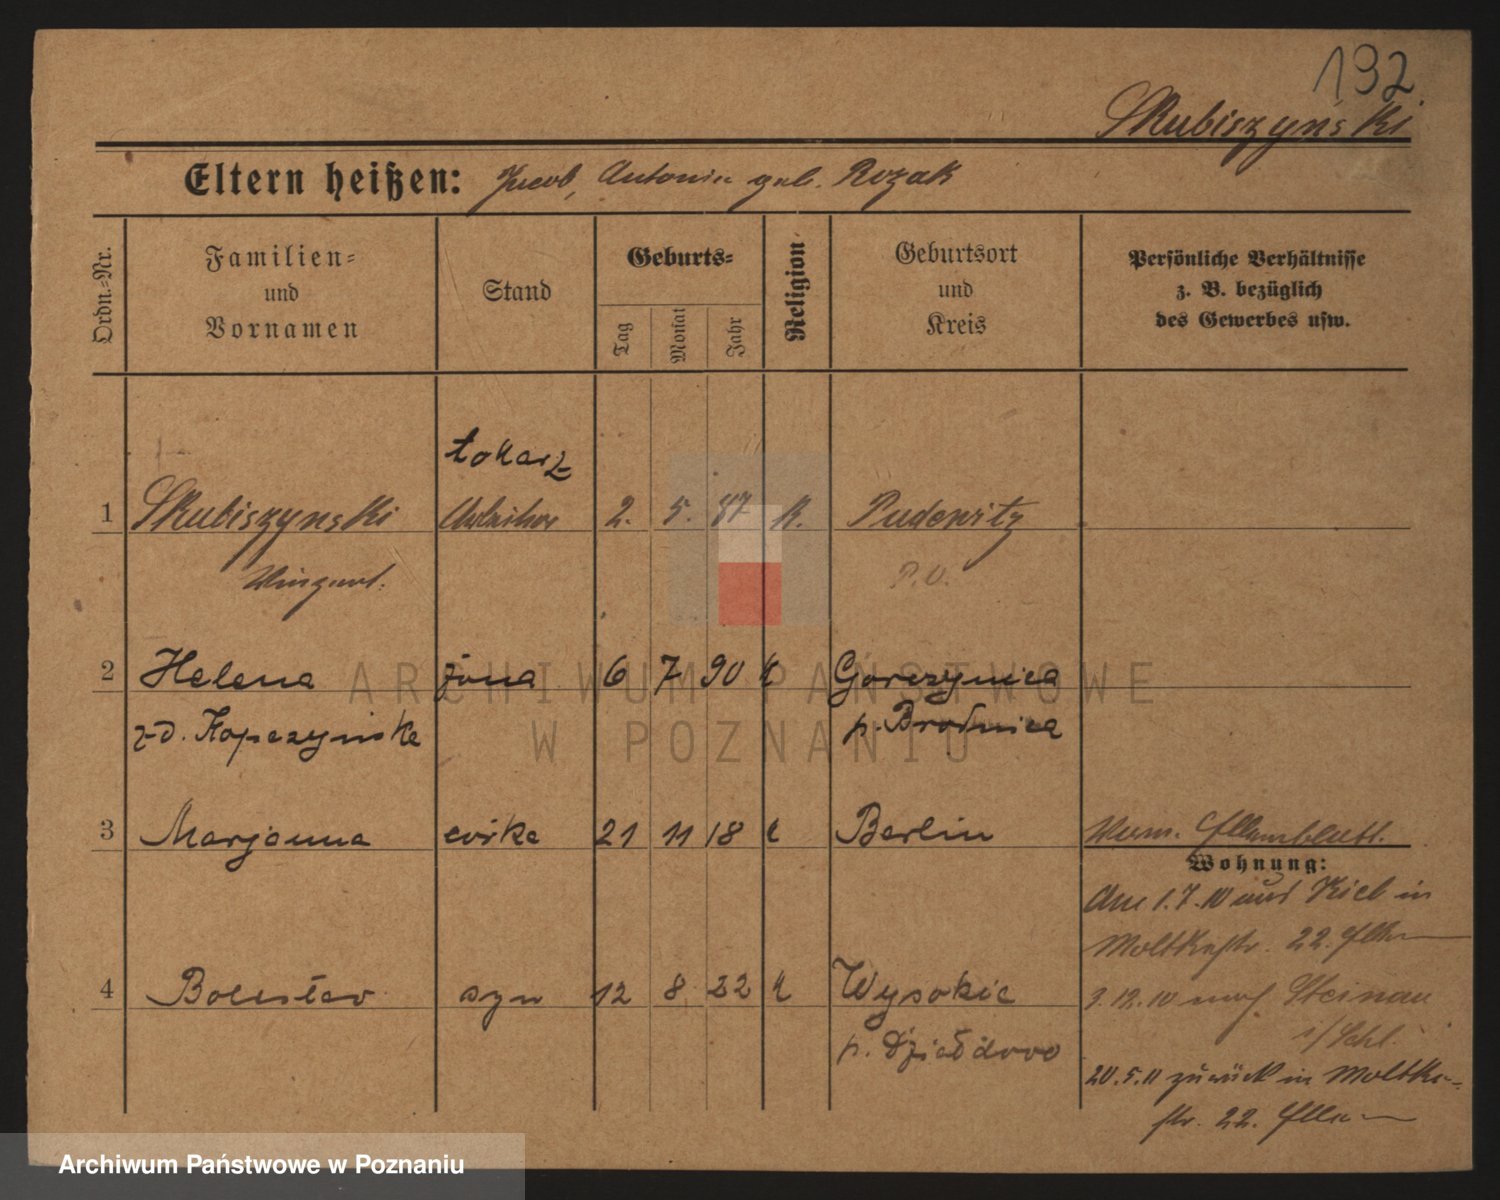 192
Skubiszyński
Eltern heißen: Jacob, Antonie geb. Rozak
Ordn.-Nr.
Familien-
und
Vornamen
Stand
Geburts-
Tag
Monat
Jahr
Religion
Geburtsort
und
Kreis
Persönliche Verhältnisse
z. B. bezüglich
des Gewerbes usw.
tokarz
1 Skubiszynski Arbeiter 2. 5. 87 K. Pudewitz
Vinzent. P.O.
2 Helena żona 6 7 90 K Gorczynica
z d. Kopczyńska p. Brodnica
3 Marjanna córka 21 11 18 K Berlin
Wohnung:
Am 1.7.10 aus Kiel in
Moltkestr. 22.
4 Bolesław syn 12 8 22 K Wysokie
3.12.10 nach Steinau
i/Schl.
p. Działdowo
20.5.11 zurück in Moltke-
str. 22.
ARCHIWUM PAŃSTWOWE
W POZNANIU
Archiwum Państwowe w Poznaniu